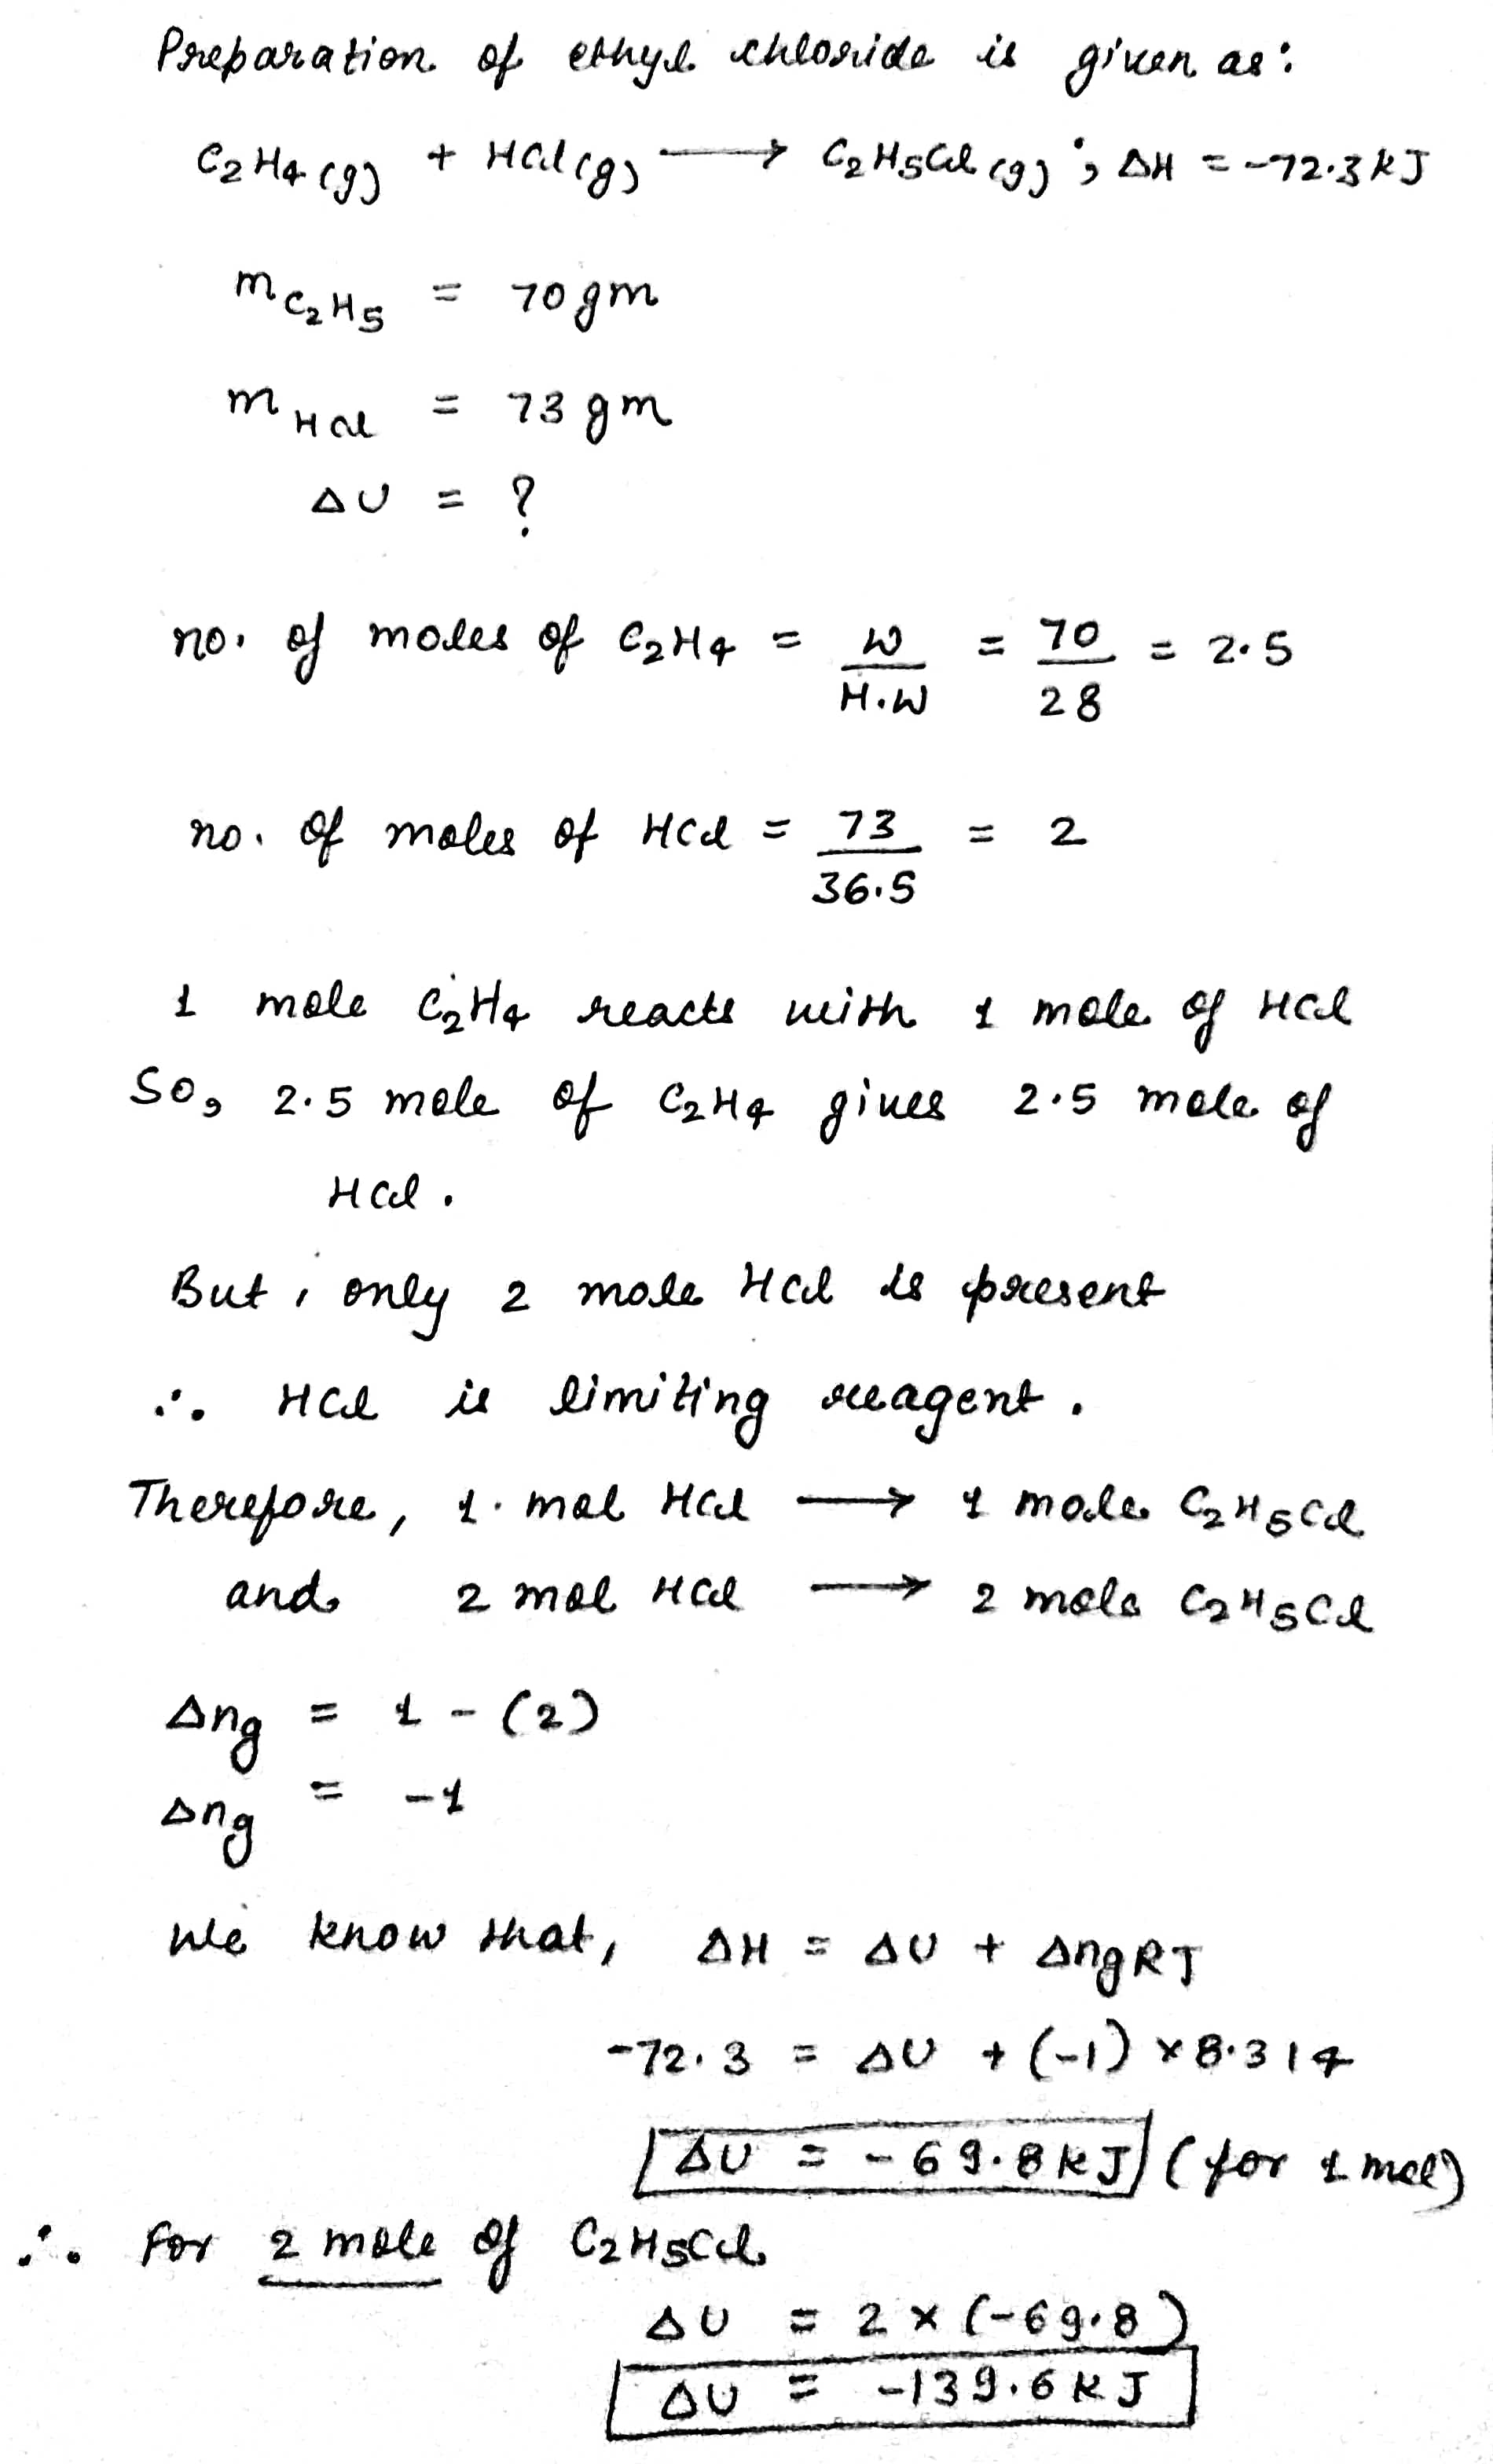 Preparation of ethyl chloride is given as:
C2H4(g) + HCl(g) ⟶ C2H5Cl(g) ; ΔH = -72.3 kJ
mC2H5 = 70 gm
mHCl = 73 gm
ΔU = ?
no. of moles of C2H4 = W/M.W = 70/28 = 2.5
no. of moles of HCl = 73/36.5 = 2
1 mole C2H4 reacts with 1 mole of HCl
So, 2.5 mole of C2H4 gives 2.5 mole of
HCl.
But, only 2 mole HCl is present
∴ HCl is limiting reagent.
Therefore, 1 mol HCl ⟶ 1 mole C2H5Cl
and 2 mol HCl ⟶ 2 mole C2H5Cl
Δng = 1 - (2)
Δng = -1
We know that, ΔH = ΔU + ΔngRT
-72.3 = ΔU + (-1) × 8.314
ΔU = -69.8 kJ (for 1 mol)
∴ For 2 mole of C2H5Cl
ΔU = 2 × (-69.8)
ΔU = -139.6 KJ